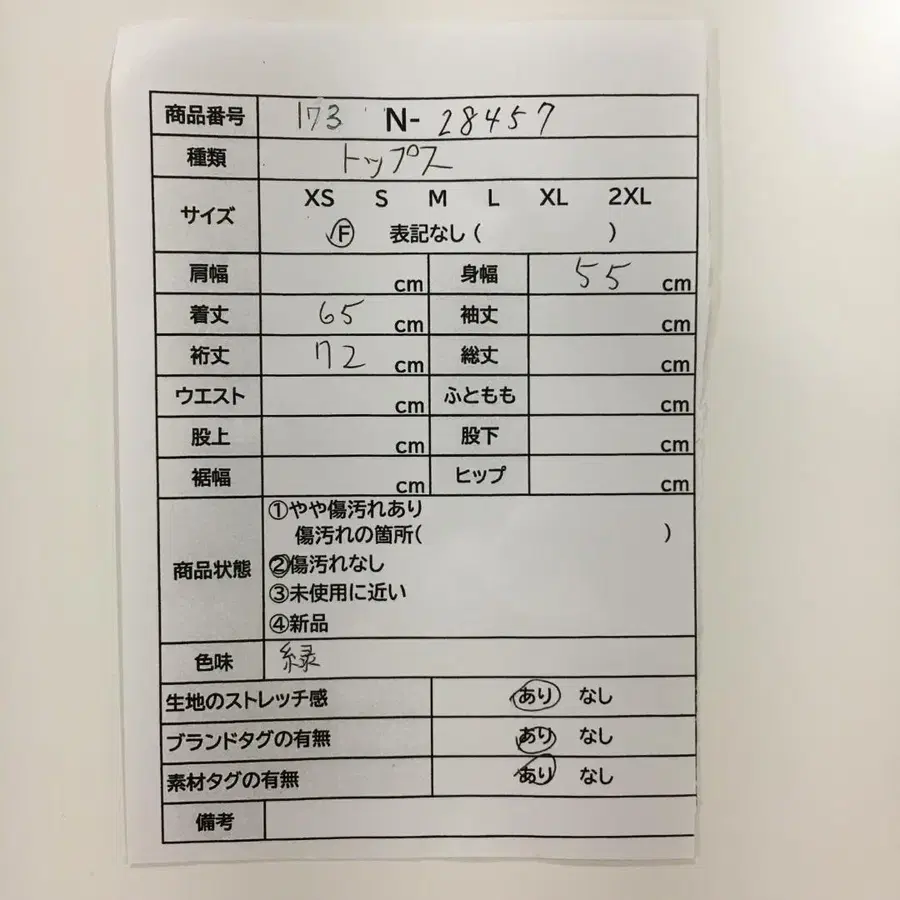 商品番号 173 N- 28457
種類 トップス
サイズ XS S M L XL 2XL
F 表記なし ( )
肩幅 cm 身幅 55 cm
着丈 65 cm 袖丈 cm
裄丈 72 cm 総丈 cm
ウエスト cm ふともも cm
股上 cm 股下 cm
裾幅 cm ヒップ cm
商品状態 ①やや傷汚れあり
傷汚れの箇所( )
②傷汚れなし
③未使用に近い
④新品
色味 緑
生地のストレッチ感 あり なし
ブランドタグの有無 あり なし
素材タグの有無 あり なし
備考